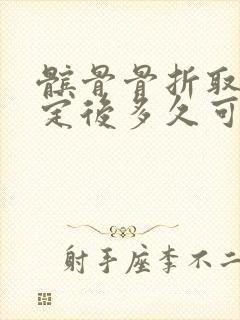 髌骨骨折取
定後多久可
射手座李不二